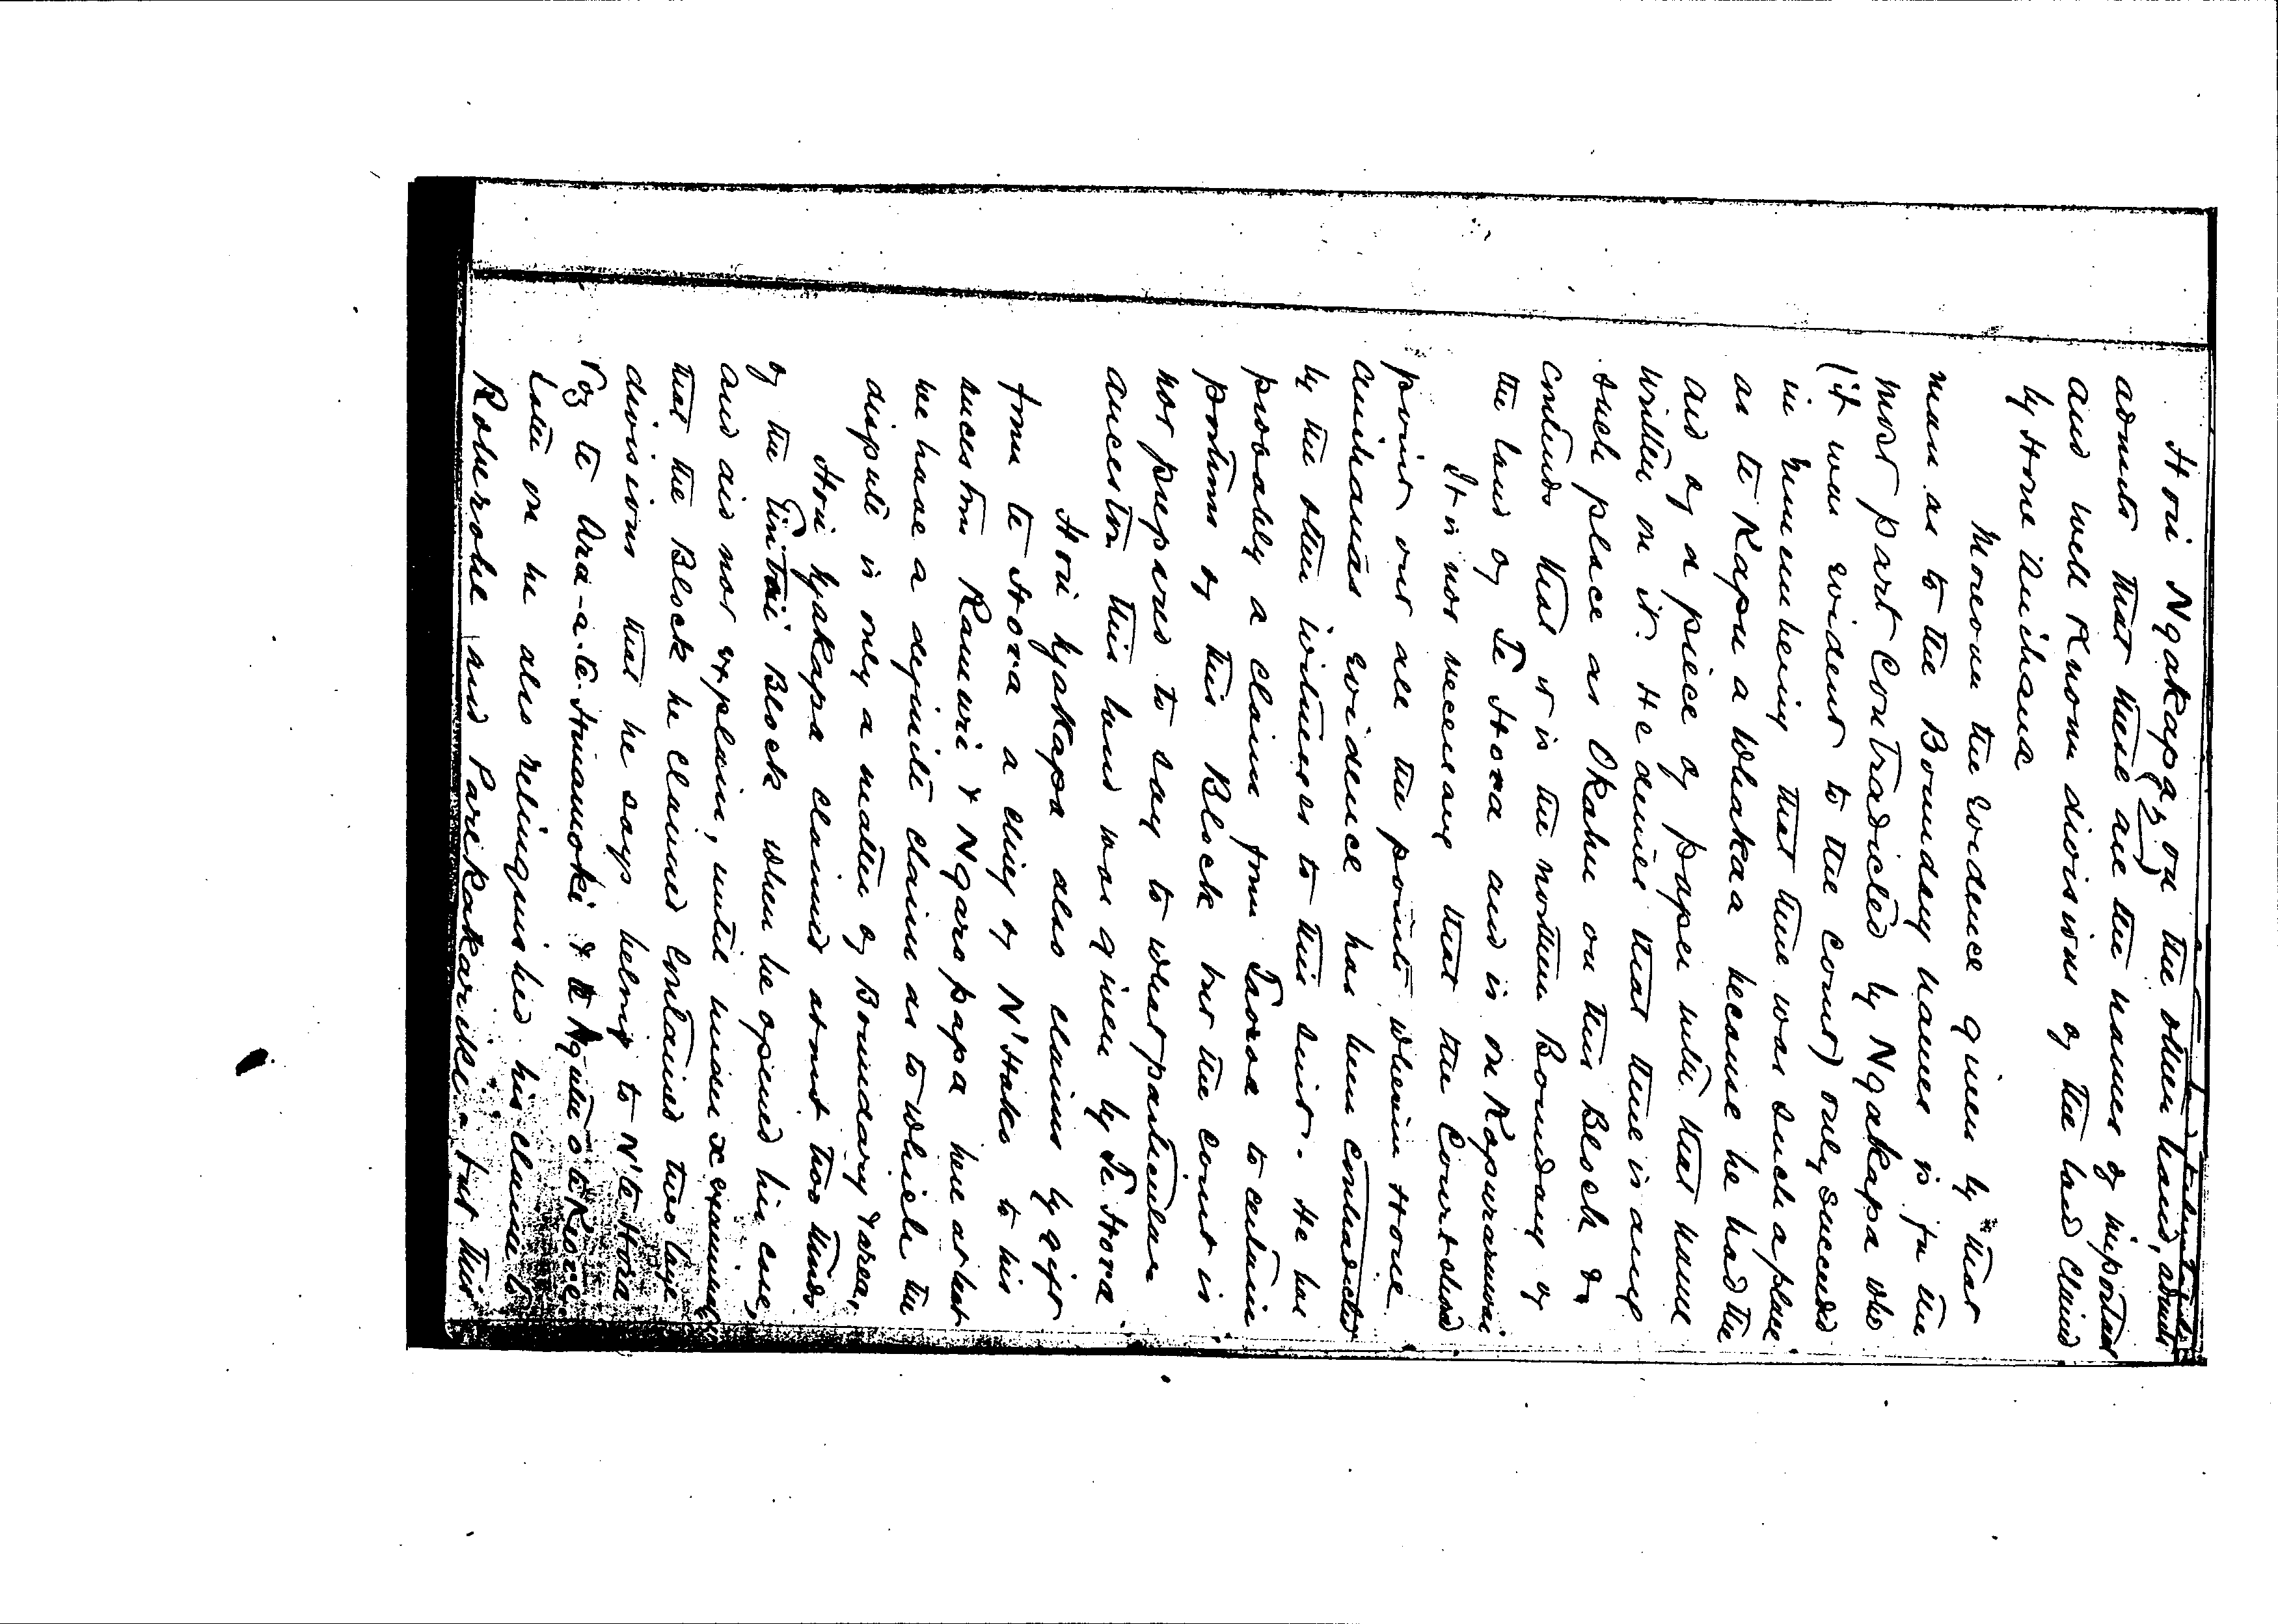 Hori Ngakapa, on the other hand, admits
admits that these are the names of important
and well known divisions of the land claimed
by Hone Anihana
Moreover the evidence given by that
man as to the Boundary names is for the
most part contradicted by Ngakapa who
(it was evident to the Court) only succeeded
in remembering that there was such a place
as te Kapu a Whakaa because he had the
aid of a piece of paper with that name
written on it. He denies that there is any
such place as Okahu on this Block &
contends that it is the northern Boundary of
the land of Te Hora and is on Kopuraruwai
It is not necessary that the Court should
point out all the points wherein Hone
Anihanas evidence has been contradicted
by the other witnesses to this suit. He has
probably a claim from Taoroa to certain
portions of this Block but the Court is
not prepared to say to what particular
ancestor this land was given by Te Hora.
Hori Ngakapa also claims by gift
from te Hora a chief of N'Hako to his
ancestors Rauwri & Ngaropapa here at last
we have a definite claim as to which the
dispute is only a matter of Boundary & area,
Hori Ngakapa claimed about two thirds
of the Block when he opened his case,
and did not explain, until under x examinatn
that the Block he claimed contained two large
divisions that he says belong to N'te Hora
Viz te Ara-a-te-Huiamoki &
Later on he also relinquished his claim to
Roturoke and Parekakariki. but this